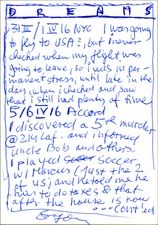 DREAMS
31/III/1/IV 16 NYC I was going
to fly to USA, but I never
checked when my flight was
going to leave, so I was in per-
manent stress, until late in the
day when I checked and saw
that I still had plenty of time
5/6 IV 16 Accord
I discovered a 5re murder
@ 214 Laf. and informed
Uncle Bob and others.
I played soccer
w/ Marcus (just the 2
of us) and he told me he
has to do taxes & that
after the house is now
CONT'ed